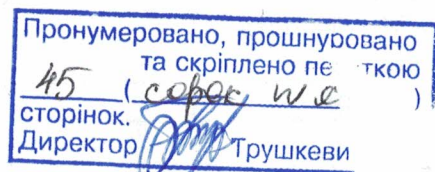 Пронумеровано, прошнуровано
та скріплено пе ткою
45 ( сорок )
сторінок.
Директор Трушкеви